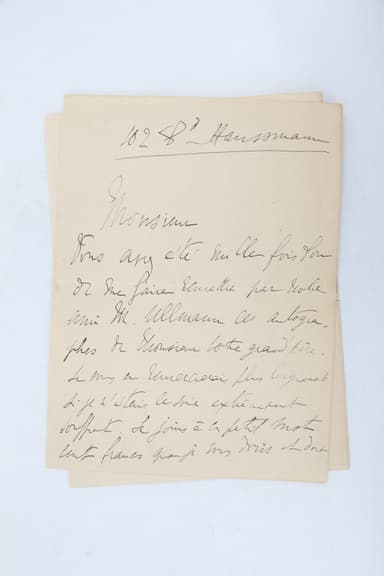 102 Bd Haussmann
Monsieur
Vous avez été mille fois bon
de me faire remettre par notre
ami M. Ullmann ces autogra-
phes de Monsieur votre grand père.
Je vous en remercierais plus longuement
si je n'étais ce soir extrêmement
souffrant. Je joins à ce petit mot
cent francs que je vous dois et dont